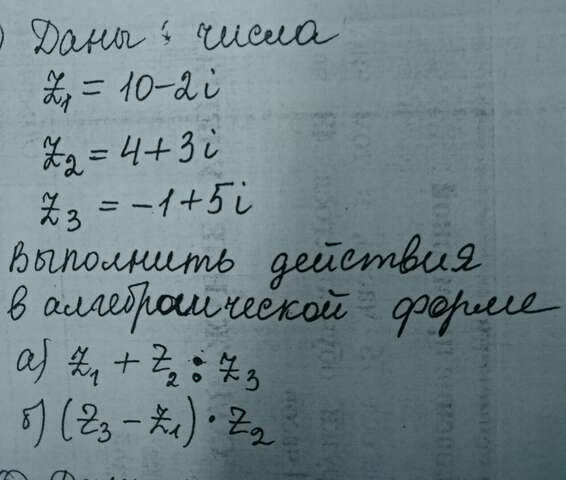 ) Даны : числа
z₁ = 10-2i
z₂ = 4+3i
z₃ = -1+5i
Выполнить действия
в алгебраической форме
а) z₁ + z₂ : z₃
б) (z₃ - z₁) · z₂